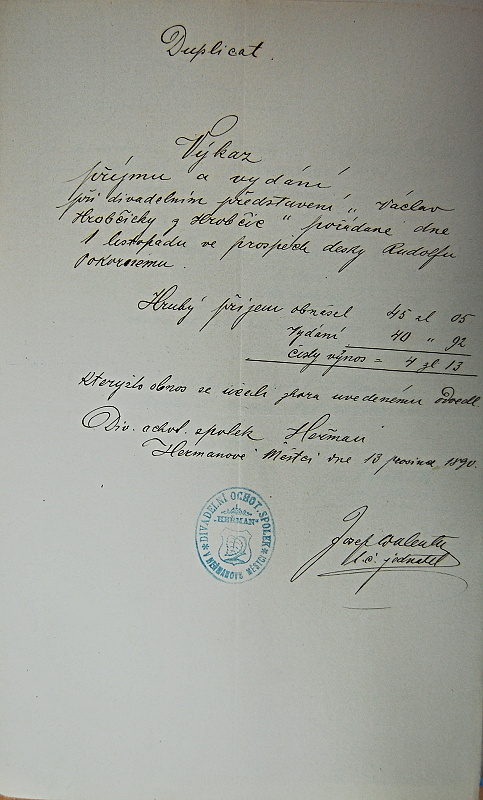 Duplicat.
Výkaz
příjmu a vydání
při divadelním představení „ Václav
Hrobčický z Hrobčic “ pořádané dne
1 listopadu ve prospěch desky Rudolfu
Pokornému.
Hrubý příjem obnášel 45 zl 05
Vydání 40 „ 92
Čistý výnos = 4 zl 13
Kterýžto obnos se účeli zhora uvedenému odvedl.
Div. ochot. spolek Heřman
Heřmanově Městci dne 13 prosince 1890.
DIVADELNÍ OCHOT. SPOLEK
„HEŘMAN“
V HEŘMANOVĚ MĚSTCI
Josef
t. č. jednatel